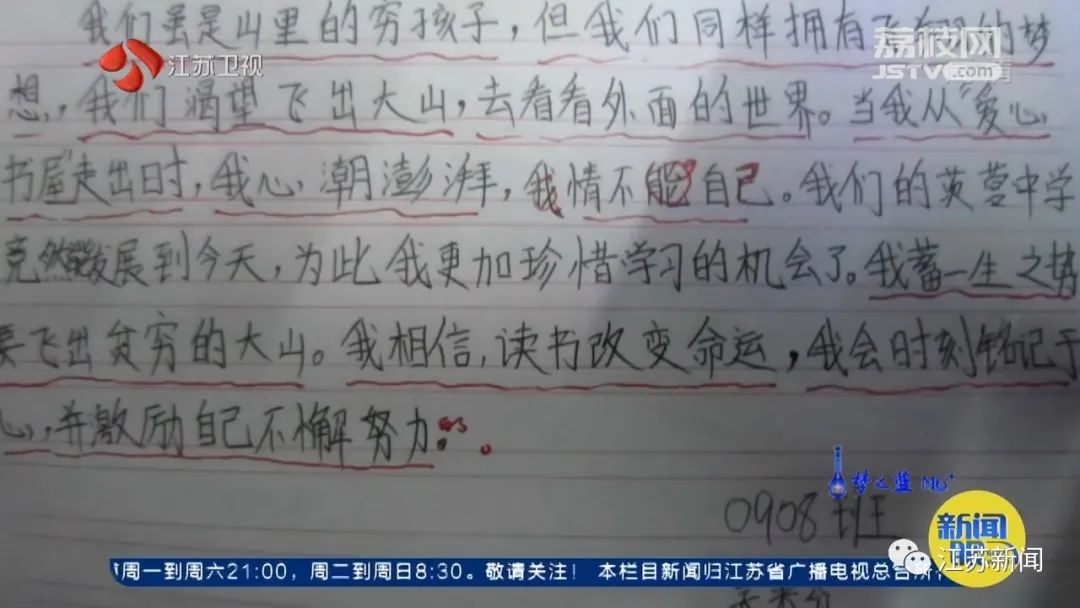 江苏卫视
荔枝网
JSTV.com
我们虽是山里的穷孩子，但我们同样拥有飞翔的梦
想，我们渴望飞出大山，去看看外面的世界。当我从“爱心
书屋”走出时，我心潮澎湃，我情不能自己。我们的英营中学
竟然发展到今天，为此我更加珍惜学习的机会了。我蓄一生之势
要飞出贫穷的大山。我相信，读书改变命运，我会时刻铭记于
心，并激励自己不懈努力的。
梦之蓝 M6+
0908班
新闻
江苏新闻
周一到周六21:00，周二到周日8:30。敬请关注！ 本栏目新闻归江苏省广播电视总台所